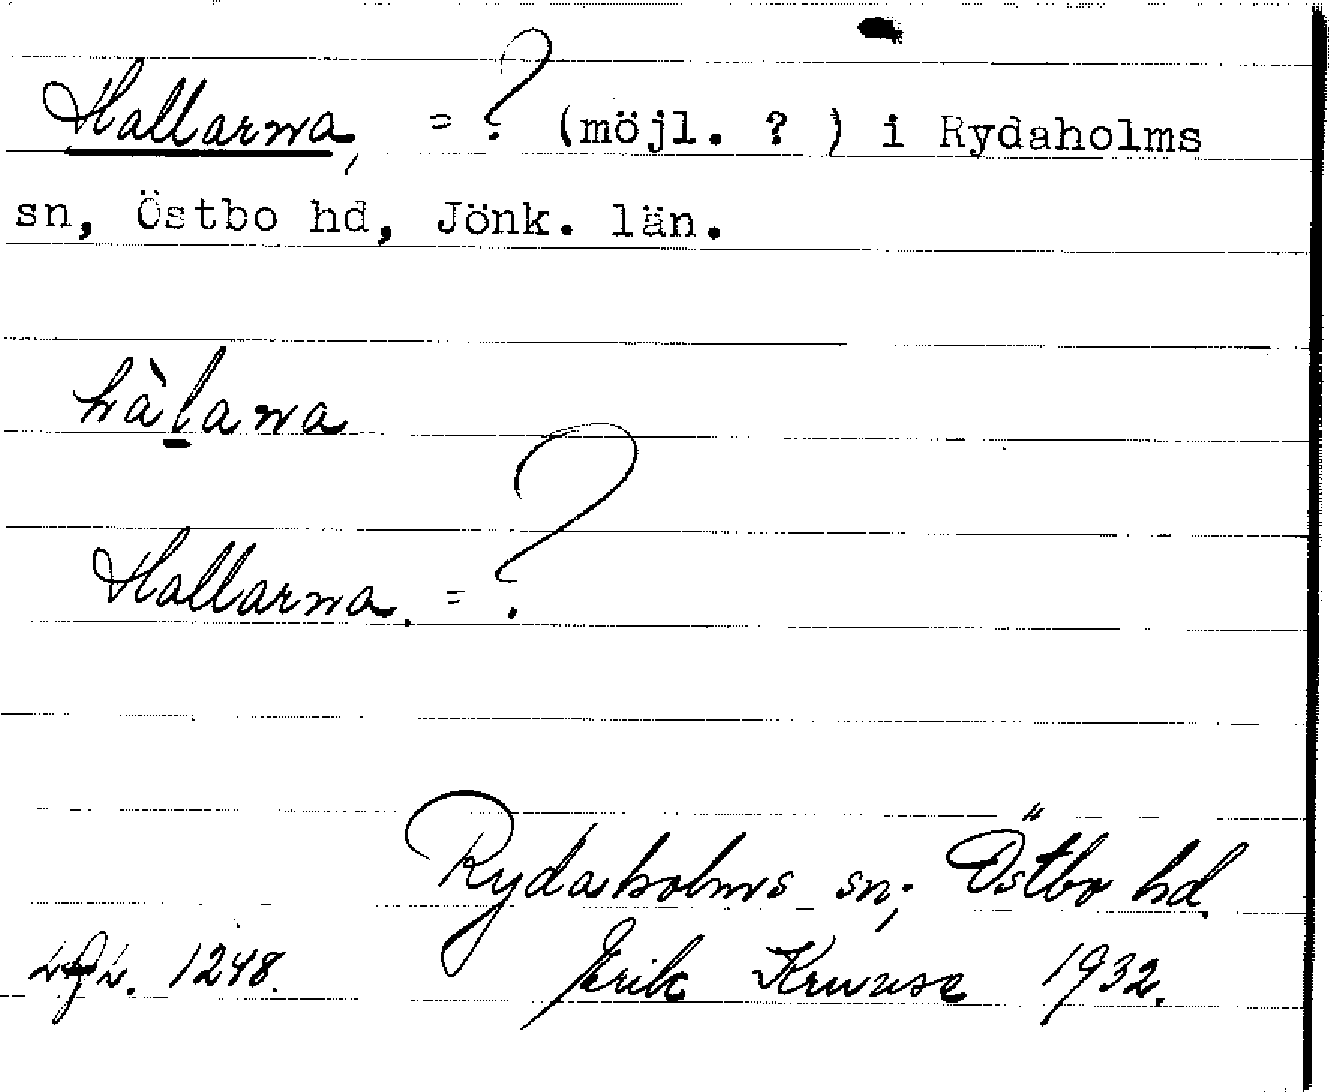 Hallarna, = ? (möjl. ? ) i Rydaholms
sn, Östbo hd, Jönk. län.
hàlana
Hallarna. = ?
Rydaholms sn; Östbo hd.
1248. Erik Kruuse 1932.